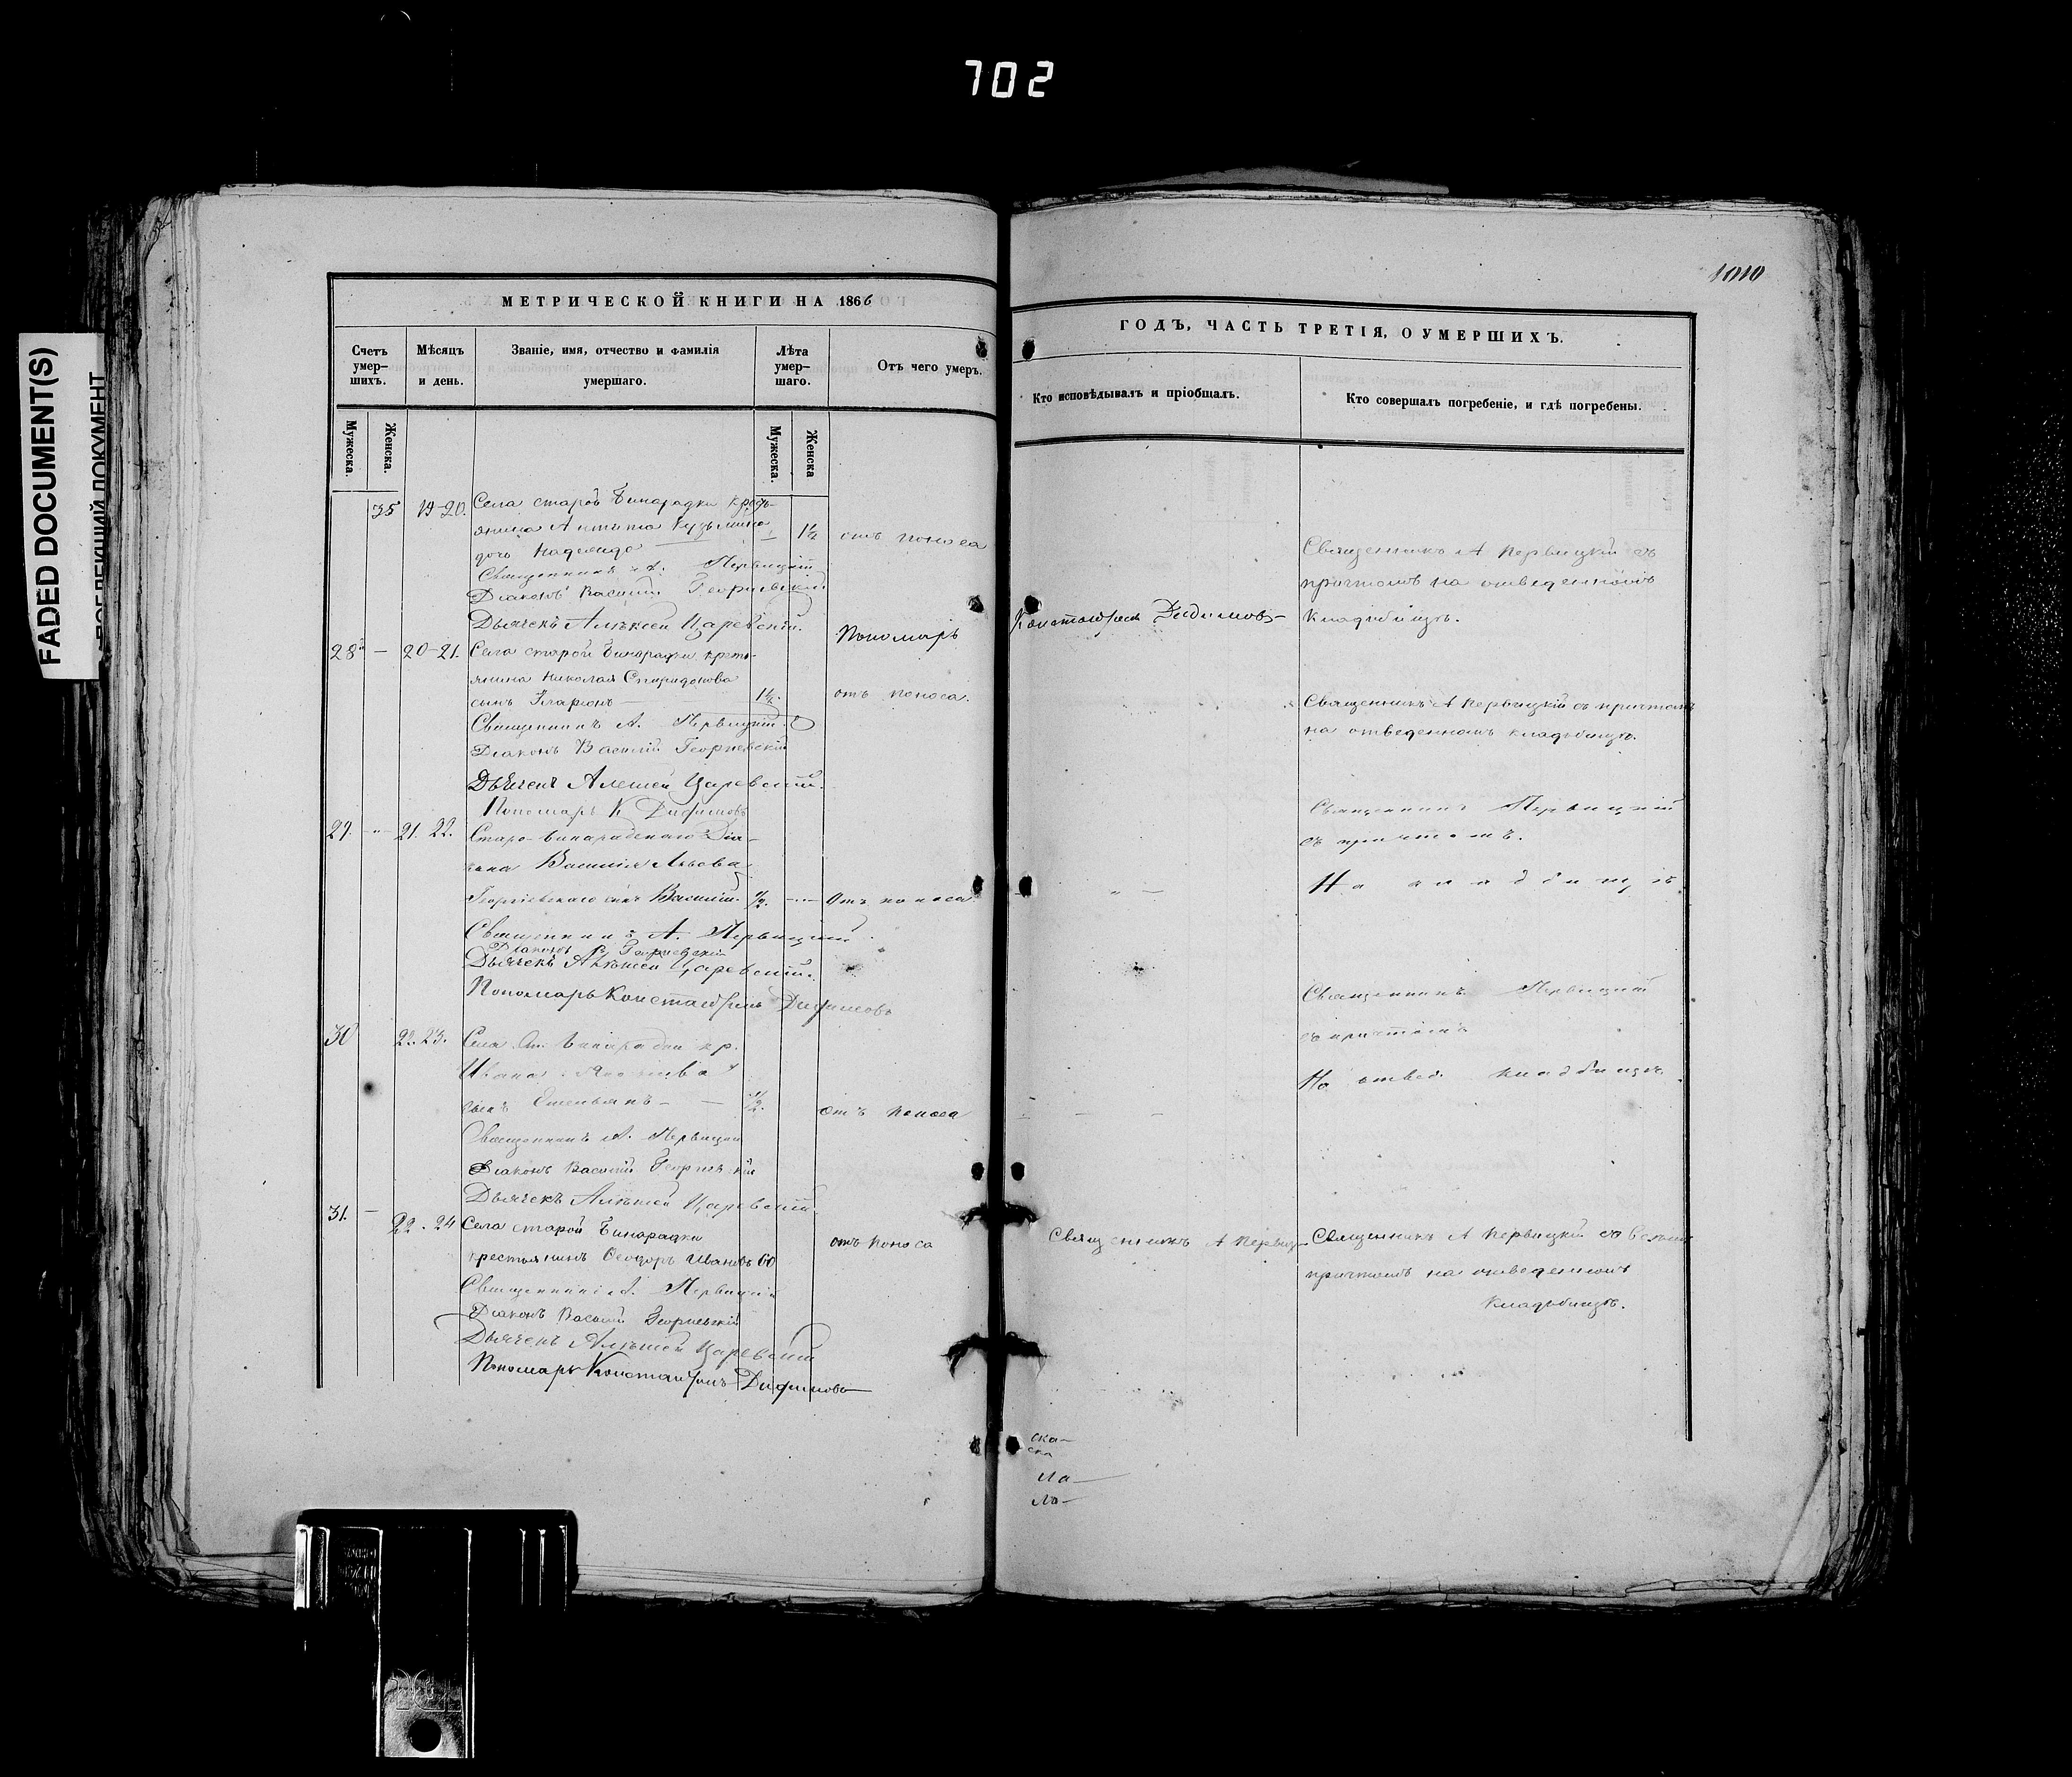 702
FADED DOCUMENT(S)
1010
МЕТРИЧЕСКОЙ КНИГИ НА 1866
ГОДЪ, ЧАСТЬ ТРЕТІЯ, О УМЕРШИХЪ.
Счетъ умер-шихъ.
Мѣсяцъ и день.
Званіе, имя, отчество и фамилія умершаго.
Лѣта умер-шаго.
Отъ чего умеръ.
Кто исповѣдывалъ и пріобщалъ.
Кто совершалъ погребеніе, и гдѣ погребены.
Мужеска.
Женска.
Мужеска.
Женска
35 19-20. Села старой Бинарадки кресть-
янина Антипа Кузьмина
дочь Надежда 1½ отъ поноса
Священникъ А. Первицкій
Діаконъ Василій Георгіевскій
Дьячекъ Алексей Царевскій.
Пономарь Константинъ Дидимовъ
Священникъ А Первицкій съ
причтомъ на отведенномъ
кладбищѣ.
28 — 20-21. Села старой Бинарадки кресть-
янина Николая Спиридонова
сынъ Иларіонъ 1½. отъ поноса.
Священникъ А. Первицкій
Діаконъ Василій Георгіевскій
Дьячекъ Алексей Царевскій.
Пономарь К Дидимовъ
Священникъ А Первицкій съ причтомъ
на отведенномъ кладбищѣ.
29. 21. 22. Старо-Бинарадскаго Діа-
кона Василія Львова
Георгіевскаго сынъ Василій. ½. Отъ поноса
Священникъ А. Первицкій
Діаконъ В Георгіевскій
Дьячекъ Алексей Царевскій.
Пономарь Константинъ Дидимовъ
Священникъ Первицкій
съ причтомъ.
На кладбищѣ.
30 22. 23. Села Ст. Бинарадки кр.
Ивана
сынъ Емельянъ ½. отъ поноса
Священникъ А. Первицкій
Діаконъ Василій Георгіевскій
Дьячекъ Алексей Царевскій
Священникъ Первицкій
съ причтомъ
На отвед. кладбищѣ.
31. — 22. 24 Села старой Бинарадки
крестьянинъ Ѳеодоръ Ивановъ 60 отъ поноса
Священникъ А. Первицкій
Діаконъ Василій Георгіевскій
Дьячекъ Алексей Царевскій
Пономарь Константинъ Дидимовъ
Священникъ А Первиц-
Священникъ А Первицкій со всемъ
причтомъ на отведенномъ
кладбищѣ.